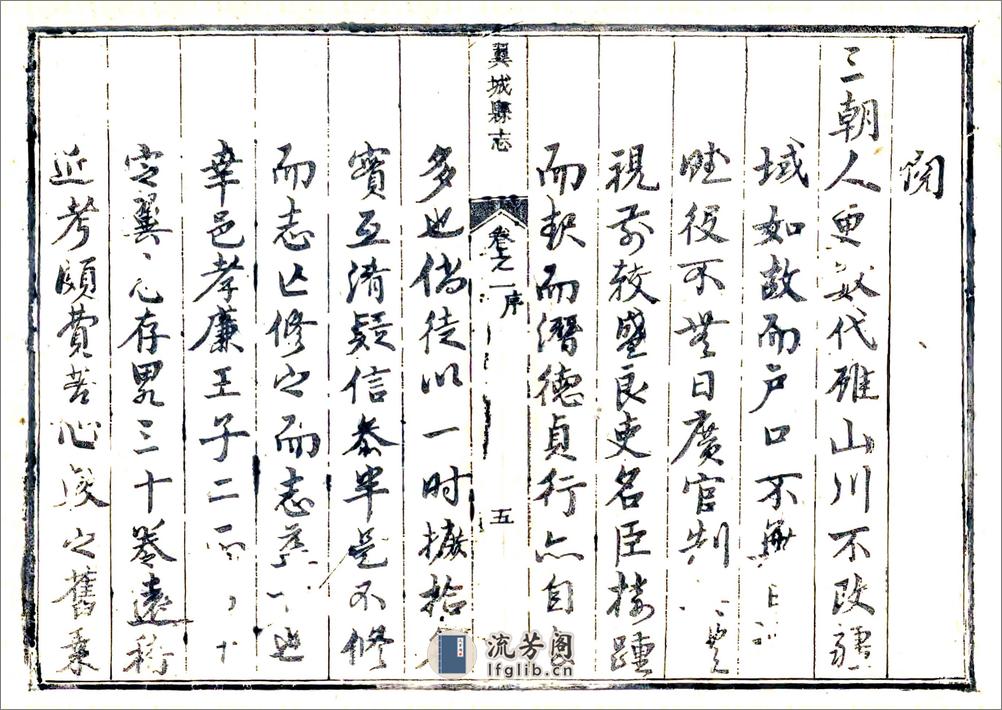 閱
三朝人更數代雖山川不改疆
域如故而戶口不無日
賦役不無日廣官制
視前較盛良吏名臣接踵
而起而潛德貞行亦自
翼城縣志
卷之一序
五
多也倘徒以一時摭拾
實互淆疑信叅半是不修
而志亡修之而志
幸邑孝廉王子二
它翼存畧三十卷遠稽
近考頗費苦心媛之舊乘
流芳阁
lfglib.cn